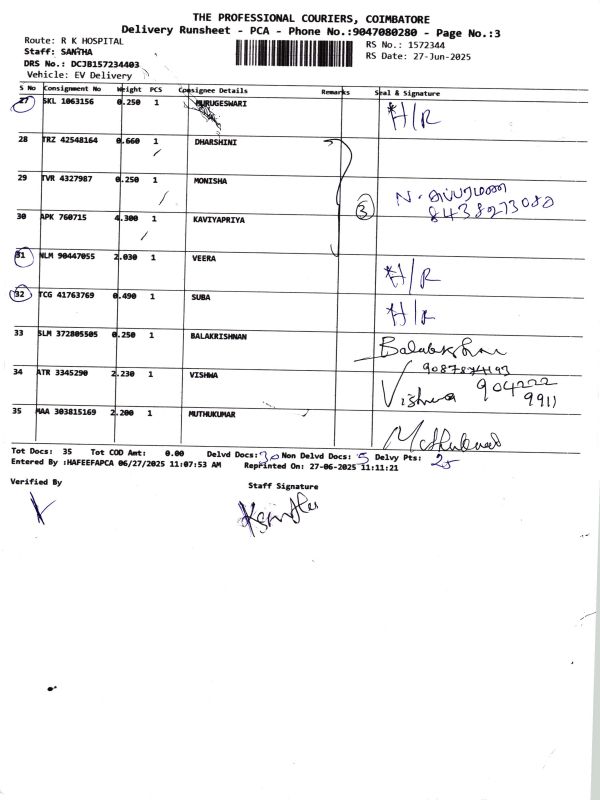 THE PROFESSIONAL COURIERS, COIMBATORE
Delivery Runsheet - PCA - Phone No.:9047080280 - Page No.:3
Route: R K HOSPITAL
RS No.: 1572344
Staff: SANTHA
RS Date: 27-Jun-2025
DRS No.: DCJB157234403
Vehicle: EV Delivery
S No Consignment No Weight PCS Consignee Details Remarks Seal & Signature
27 SKL 1063156 0.250 1 MURUGESWARI *H/R
28 TRZ 42548164 0.660 1 DHARSHINI
29 TVR 4327987 0.250 1 MONISHA
3 N.
8438273080
30 APK 760715 4.300 1 KAVIYAPRIYA
31 NLM 90447055 2.030 1 VEERA *H/R
32 TCG 41763769 0.490 1 SUBA *H/R
33 SLM 372805505 0.250 1 BALAKRISHNAN
34 ATR 3345290 2.230 1 VISHWA Vishwa 904222
9911
35 MAA 303815169 2.200 1 MUTHUKUMAR
Tot Docs: 35 Tot COD Amt: 0.00 Delvd Docs: 30 Non Delvd Docs: 5 Delvy Pts: 25
Entered By :HAFEEFAPCA 06/27/2025 11:07:53 AM RepFinted On: 27-06-2025 11:11:21
Verified By
Staff Signature